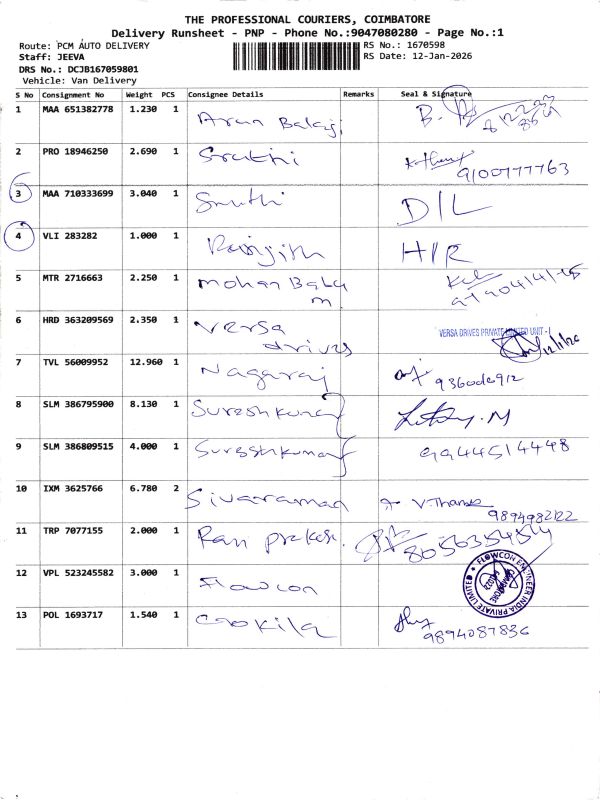 THE PROFESSIONAL COURIERS, COIMBATORE
Delivery Runsheet - PNP - Phone No.:9047080280 - Page No.:1
Route: PCM AUTO DELIVERY
RS No.: 1670598
Staff: JEEVA
RS Date: 12-Jan-2026
DRS No.: DCJB167059801
Vehicle: Van Delivery
S No Consignment No Weight PCS Consignee Details Remarks Seal & Signature
1 MAA 651382778 1.230 1 Arun Balaji B.
2 PRO 18946250 2.690 1 Sruthi 9100777763
3 MAA 710333699 3.040 1 Smithi D/L
4 VLI 283282 1.000 1 Ranjith H/R
5 MTR 2716663 2.250 1 mohan Balu
m.
6 HRD 363209569 2.350 1 Versa VERSA DRIVES PRIVATE LIMITED UNIT - I
drives 12/1/26
7 TVL 56009952 12.960 1 Nagaraj
8 SLM 386795900 8.130 1 Sureshkumar
9 SLM 386809515 4.000 1 Sureshkumar 9944514448
10 IXM 3625766 6.780 2 Sivaraman V.Thamz
9894982122
11 TRP 7077155 2.000 1 Ram prakash. 8056354514
12 VPL 523245582 3.000 1 Flowcon FLOWCON ENGINEER INDIA PRIVATE LIMITED
13 POL 1693717 1.540 1 Gokila
9894087836